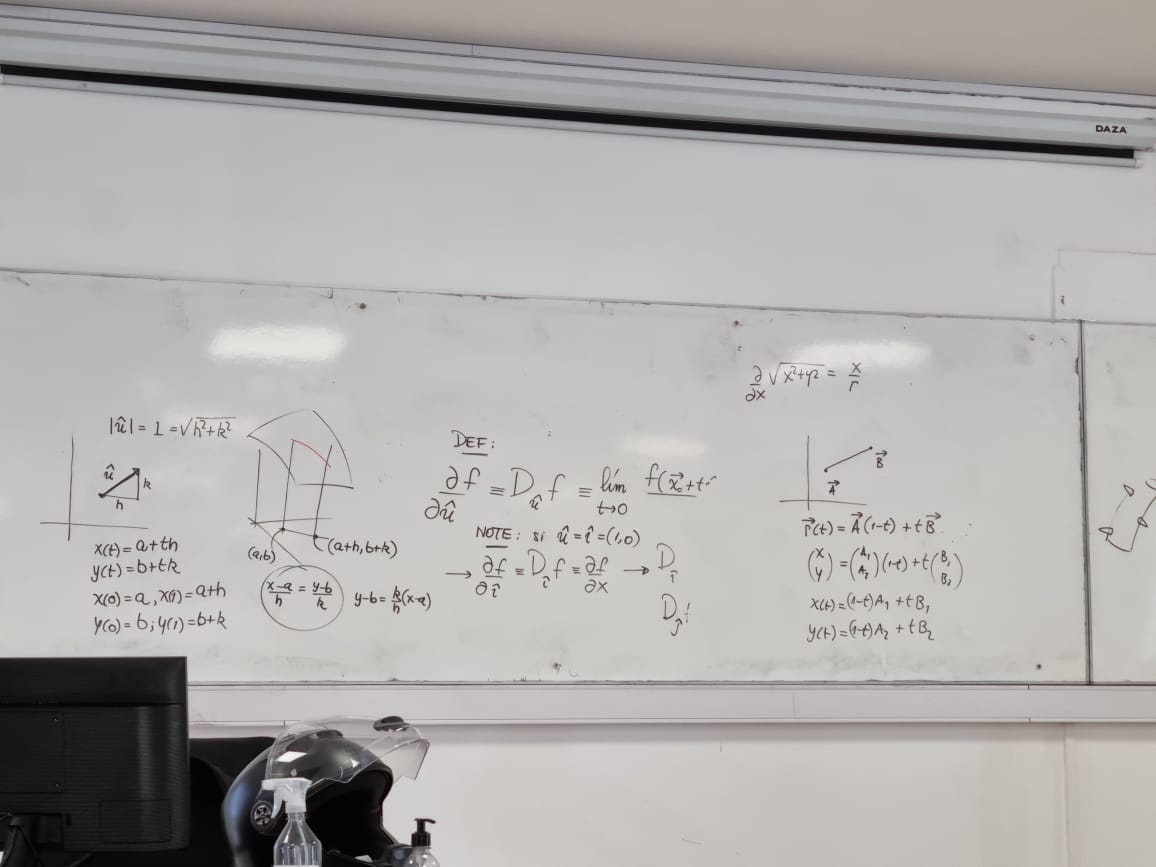 DAZA
|û| = 1 = √h²+k²
û
k
h
x(t) = a+th
y(t) = b+tk
x(0) = a, x(1) = a+h
y(0) = b; y(1) = b+k
(a,b)
(a+h, b+k)
x-a/h = y-b/k
y-b = k/h (x-a)
DEF:
∂f/∂û ≡ D_û f ≡ lím t→0 f(x⃗₀+t
NOTE: si û = î = (1,0)
→ ∂f/∂î ≡ D_î f ≡ ∂f/∂x → D_î
D_ĵ f
∂/∂x √x²+y² = x/r
A⃗
B⃗
r⃗(t) = A⃗(1-t) + tB⃗
(x y) = (A₁ A₂)(1-t) + t(B₁ B₂)
x(t) = (1-t)A₁ + tB₁
y(t) = (1-t)A₂ + tB₂